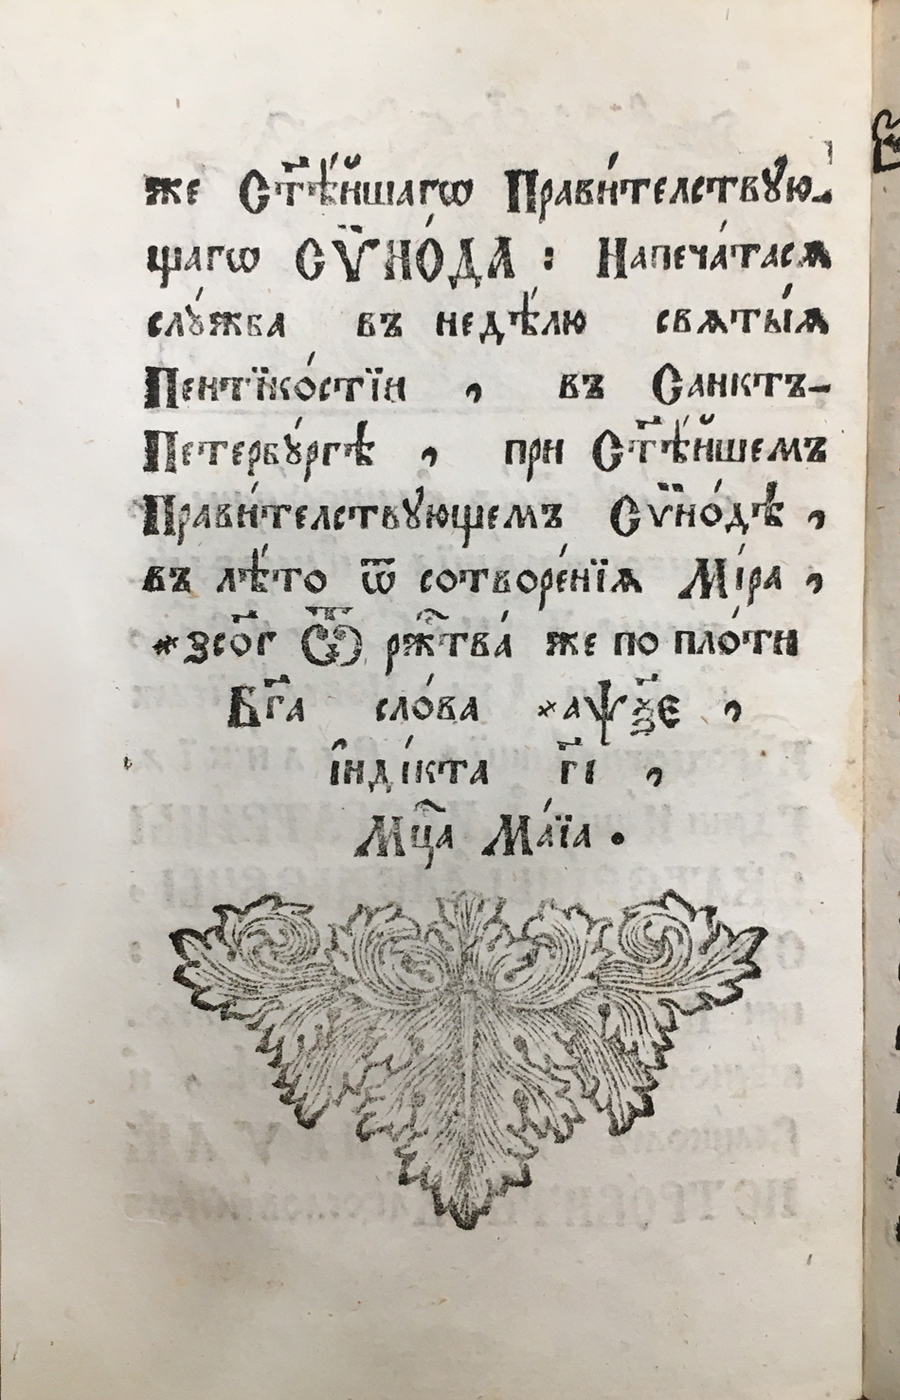 же Ст҃ѣ́йшагѡ Прави́телствꙋ́ю-
щагѡ СѴ̈НО́ДА : Напеча́тасѧ
слꙋ́жба въ недѣ́лю свѧты́ѧ
Пентїко́стїи , въ Санктъ-
Петербꙋ́ргѣ , при Ст҃ѣ́йшемъ
Прави́телствꙋ́ющемъ Сѵ̈но́дѣ ,
въ лѣ́то ѿ сотворе́нїѧ Мі́ра ,
҂зсо҃г Ѿ рж҃тва́ же по пло́ти
Бг҃а сло́ва ҂аѱѯ҃е ,
і҆нді́кта г҃і ,
Мц҃а Ма́їа .